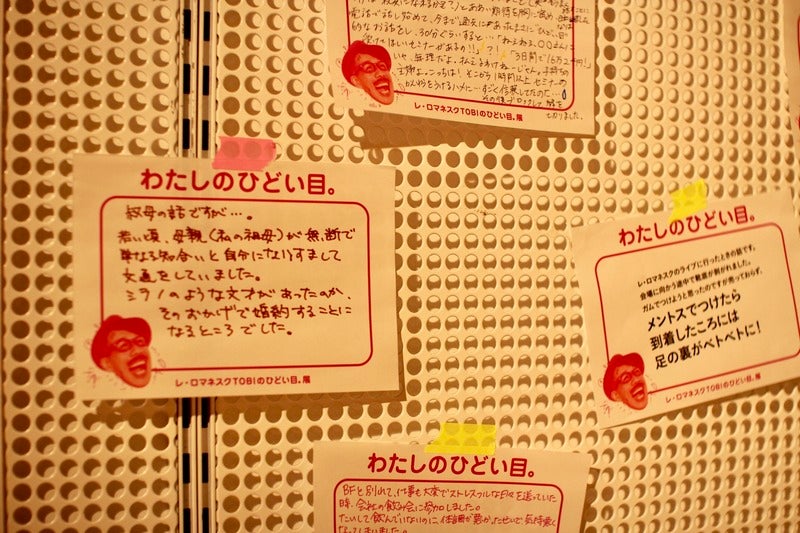 電話で話し始めて、今まで
的なお話をし、30分ぐらいすると…「ねぇねぇ、〇〇さんに
受けてほしいセミナーがあるの!!」?!「3日間で16万2千円!」
いや、無理だよ。
主婦よ、こっちは!そこから1時間以上セミナーの
すごく信頼してたのに…
その後ブロックして
なりました。
レ・ロマネスクTOBIのひどい目。展
わたしのひどい目。
叔母の話ですが…。
若い頃、母親(私の祖母)が無断で
単なる知合いと自分になりすまして
文通をしていました。
シラノのような文才があったのか、
そのおかげで婚約することに
なるところでした。
レ・ロマネスクTOBIのひどい目。展
わたしのひどい目。
レ・ロマネスクのライブに行ったときの話です。
会場に向かう途中で靴底が剥がれました。
ガムでつけようと思ったのですが売っておらず、
メントスでつけたら
到着したころには
足の裏がベトベトに!
レ・ロマネスクTOBIのひどい目。展
わたしのひどい目。
BFと別れて、仕事も大変でストレスフルな日々を送っていた
時、会社の飲み会に参加しました。
たいして飲んでいないのに、体調が悪かったせいで気持悪く
なってしまいました。